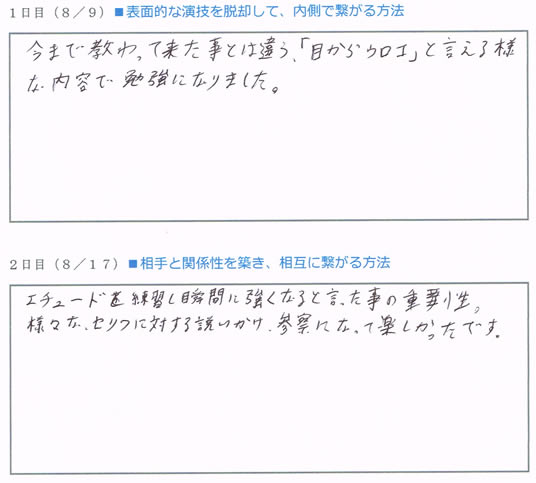 1日目(8/9)■表面的な演技を脱却して、内側で繋がる方法
今まで教わって来た事とは違う、「目からウロコ」と言える様
な内容で勉強になりました。
2日目(8/17)■相手と関係性を築き、相互に繋がる方法
エチュードを練習し瞬間に強くなると言った事の重要性。
様々な、セリフに対する説いかけ、参察になって楽しかったです。